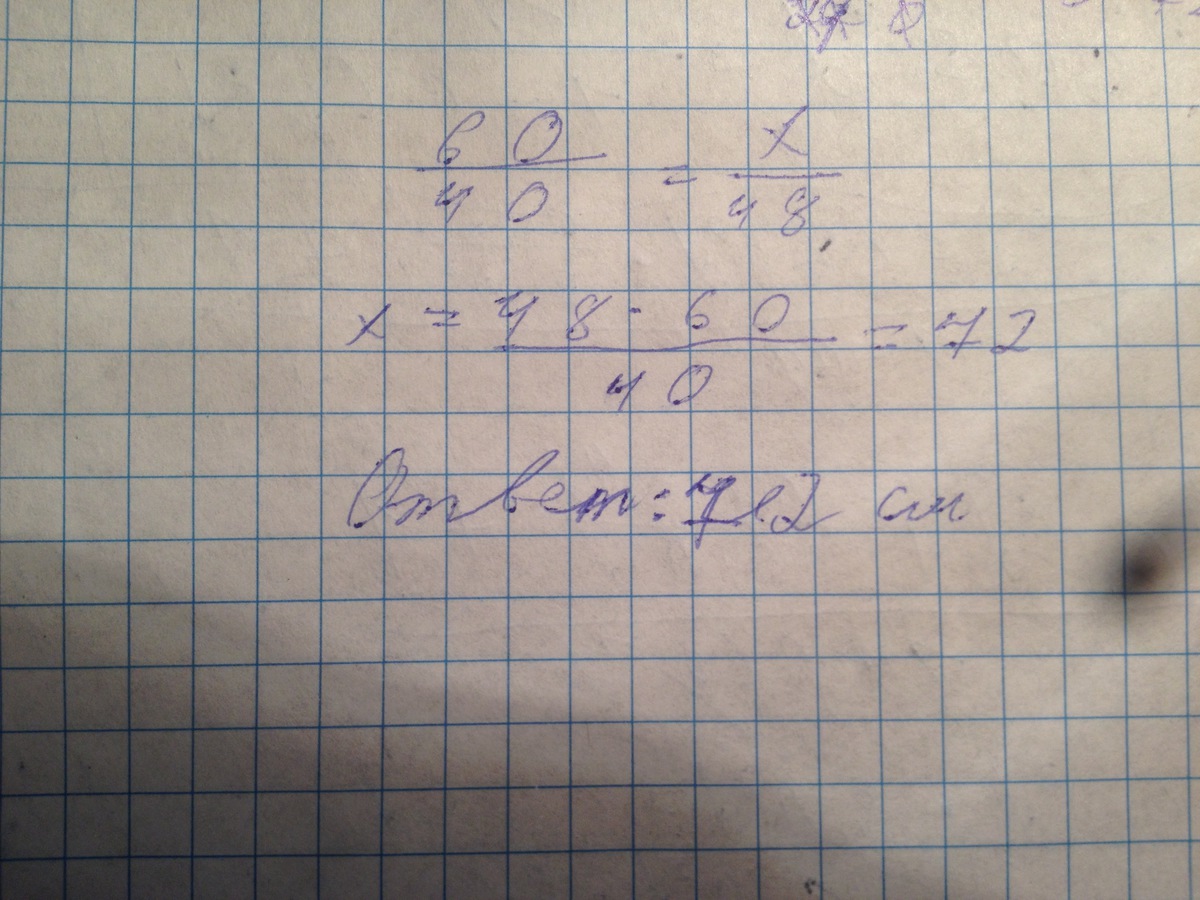 60/40 = x/48
x = 48·60/40 = 72
Ответ: 72 см